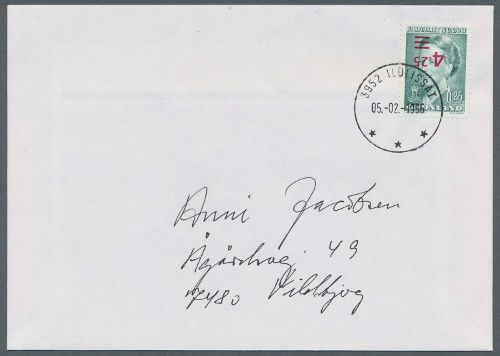 KALAALLIT NUNAAT
4.25
0.25
GRØNLAND
3952 ILULISSAT
05.-02.-1996
Anni Jacobsen
Ågårdvej 49
7480 Vildbjerg